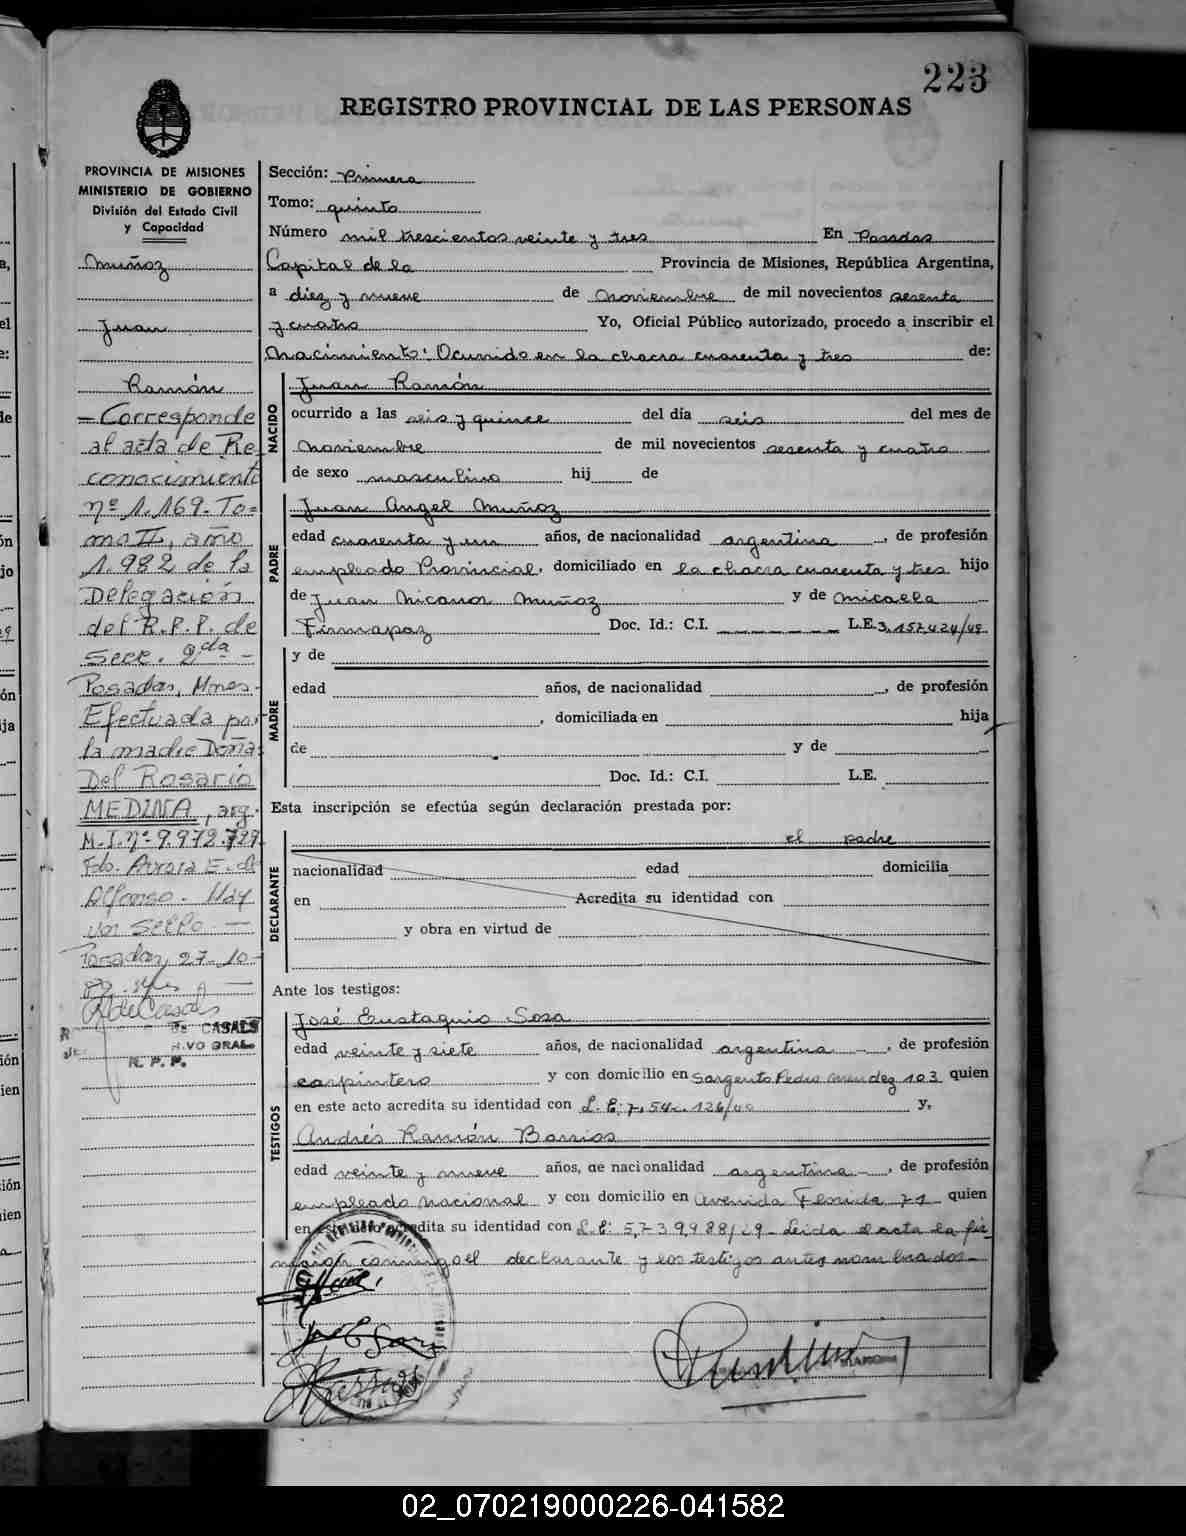 223
REGISTRO PROVINCIAL DE LAS PERSONAS
PROVINCIA DE MISIONES
MINISTERIO DE GOBIERNO
División del Estado Civil
y Capacidad
Muñoz
Juan
Ramón
- Corresponde
al acta de Re-
conocimiento
nº 1.169. To=
mo II, año
1.982 de la
Delegación
del R.P.P. de
Secc. 2da -
Posadas, Mnes-
Efectuada por
la madre Doña
Del Rosario
MEDINA, arg.
M.I.Nº 9.972.729.
Fdo. Arrora E. de
Alfonso. Hay
un sello. —
Posadas, 27-10-
R de Casals
de CASALS
R. P. P.
Sección: Primera
Tomo: quinto
Número mil trescientos veinte y tres En Posadas
Capital de la Provincia de Misiones, República Argentina,
a diez y nueve de noviembre de mil novecientos sesenta
y cuatro Yo, Oficial Público autorizado, procedo a inscribir el
Nacimiento: Ocurrido en la chacra cuarenta y tres de:
NACIDO
Juan Ramón
ocurrido a las seis y quince del día seis del mes de
noviembre de mil novecientos sesenta y cuatro
de sexo masculino hij de
PADRE
Juan Angel Muñoz
edad cuarenta y un años, de nacionalidad argentina, de profesión
empleado Provincial, domiciliado en la chacra cuarenta y tres hijo
de Juan Nicanor Muñoz y de Micaela
Firmapaz Doc. Id.: C.I. L.E. 3.157.424/48
MADRE
y de
edad años, de nacionalidad , de profesión
, domiciliada en hija
de y de
Doc. Id.: C.I. L.E.
Esta inscripción se efectúa según declaración prestada por:
DECLARANTE
el padre
nacionalidad edad domicilia
en Acredita su identidad con
y obra en virtud de
Ante los testigos:
TESTIGOS
José Eustaquio Sosa
edad veinte y siete años, de nacionalidad argentina, de profesión
carpintero y con domicilio en Sargento Pedro Mendez 103 quien
en este acto acredita su identidad con L.E: 7.54 .126/ y,
Andrés Ramón Barrios
edad veinte y nueve años, de nacionalidad argentina, de profesión
empleado nacional y con domicilio en Avenida Florida 71 quien
en este acto acredita su identidad con L.E: 5,739988/29- Leida el acta la fir-
maron conmigo el declarante y los testigos antes nombrados-
02_070219000226-041582